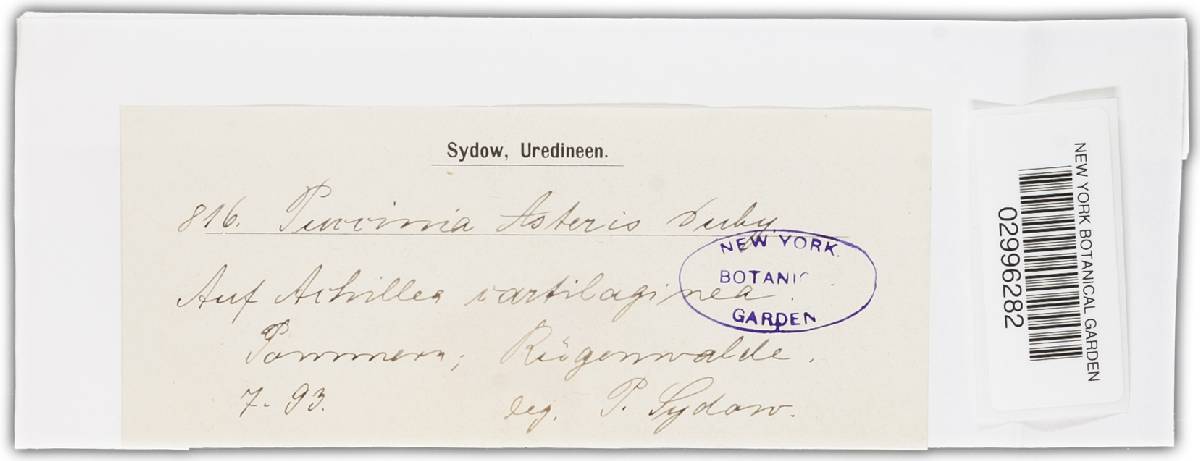 Sydow, Uredineen.
816. Puccinia Asteris Duby.
Auf Achillea cartilaginea.
Pommern; Rügenwalde.
7-93. leg. P. Sydow.
NEW YORK
BOTANIC
GARDEN
NEW YORK BOTANICAL GARDEN
02996282